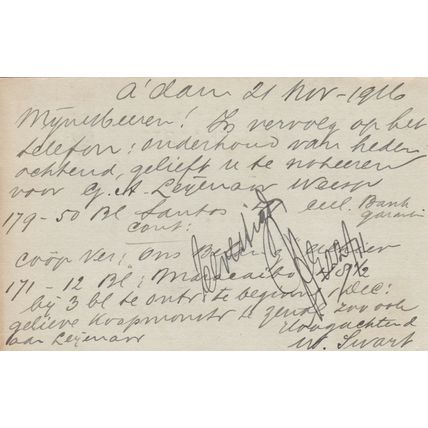 A'dam 21 Nov-1916
Mijne Heeren! In vervolg op het
telefon: onderhoud van heden
ochtend, gelieft u te noteeren
voor G. A. Leijenaar Weesp
179-50 Bl Santos ccll. Bank
cont: garantie
coöp Ver: Ons
171-12 Bl: Maracaibo 59½
bij 3 bl te ontv te beginnen Dec:
gelieve Koopmonstr te zenden zoo ook
aan Leijenaar Hoogachtend
W. Swart